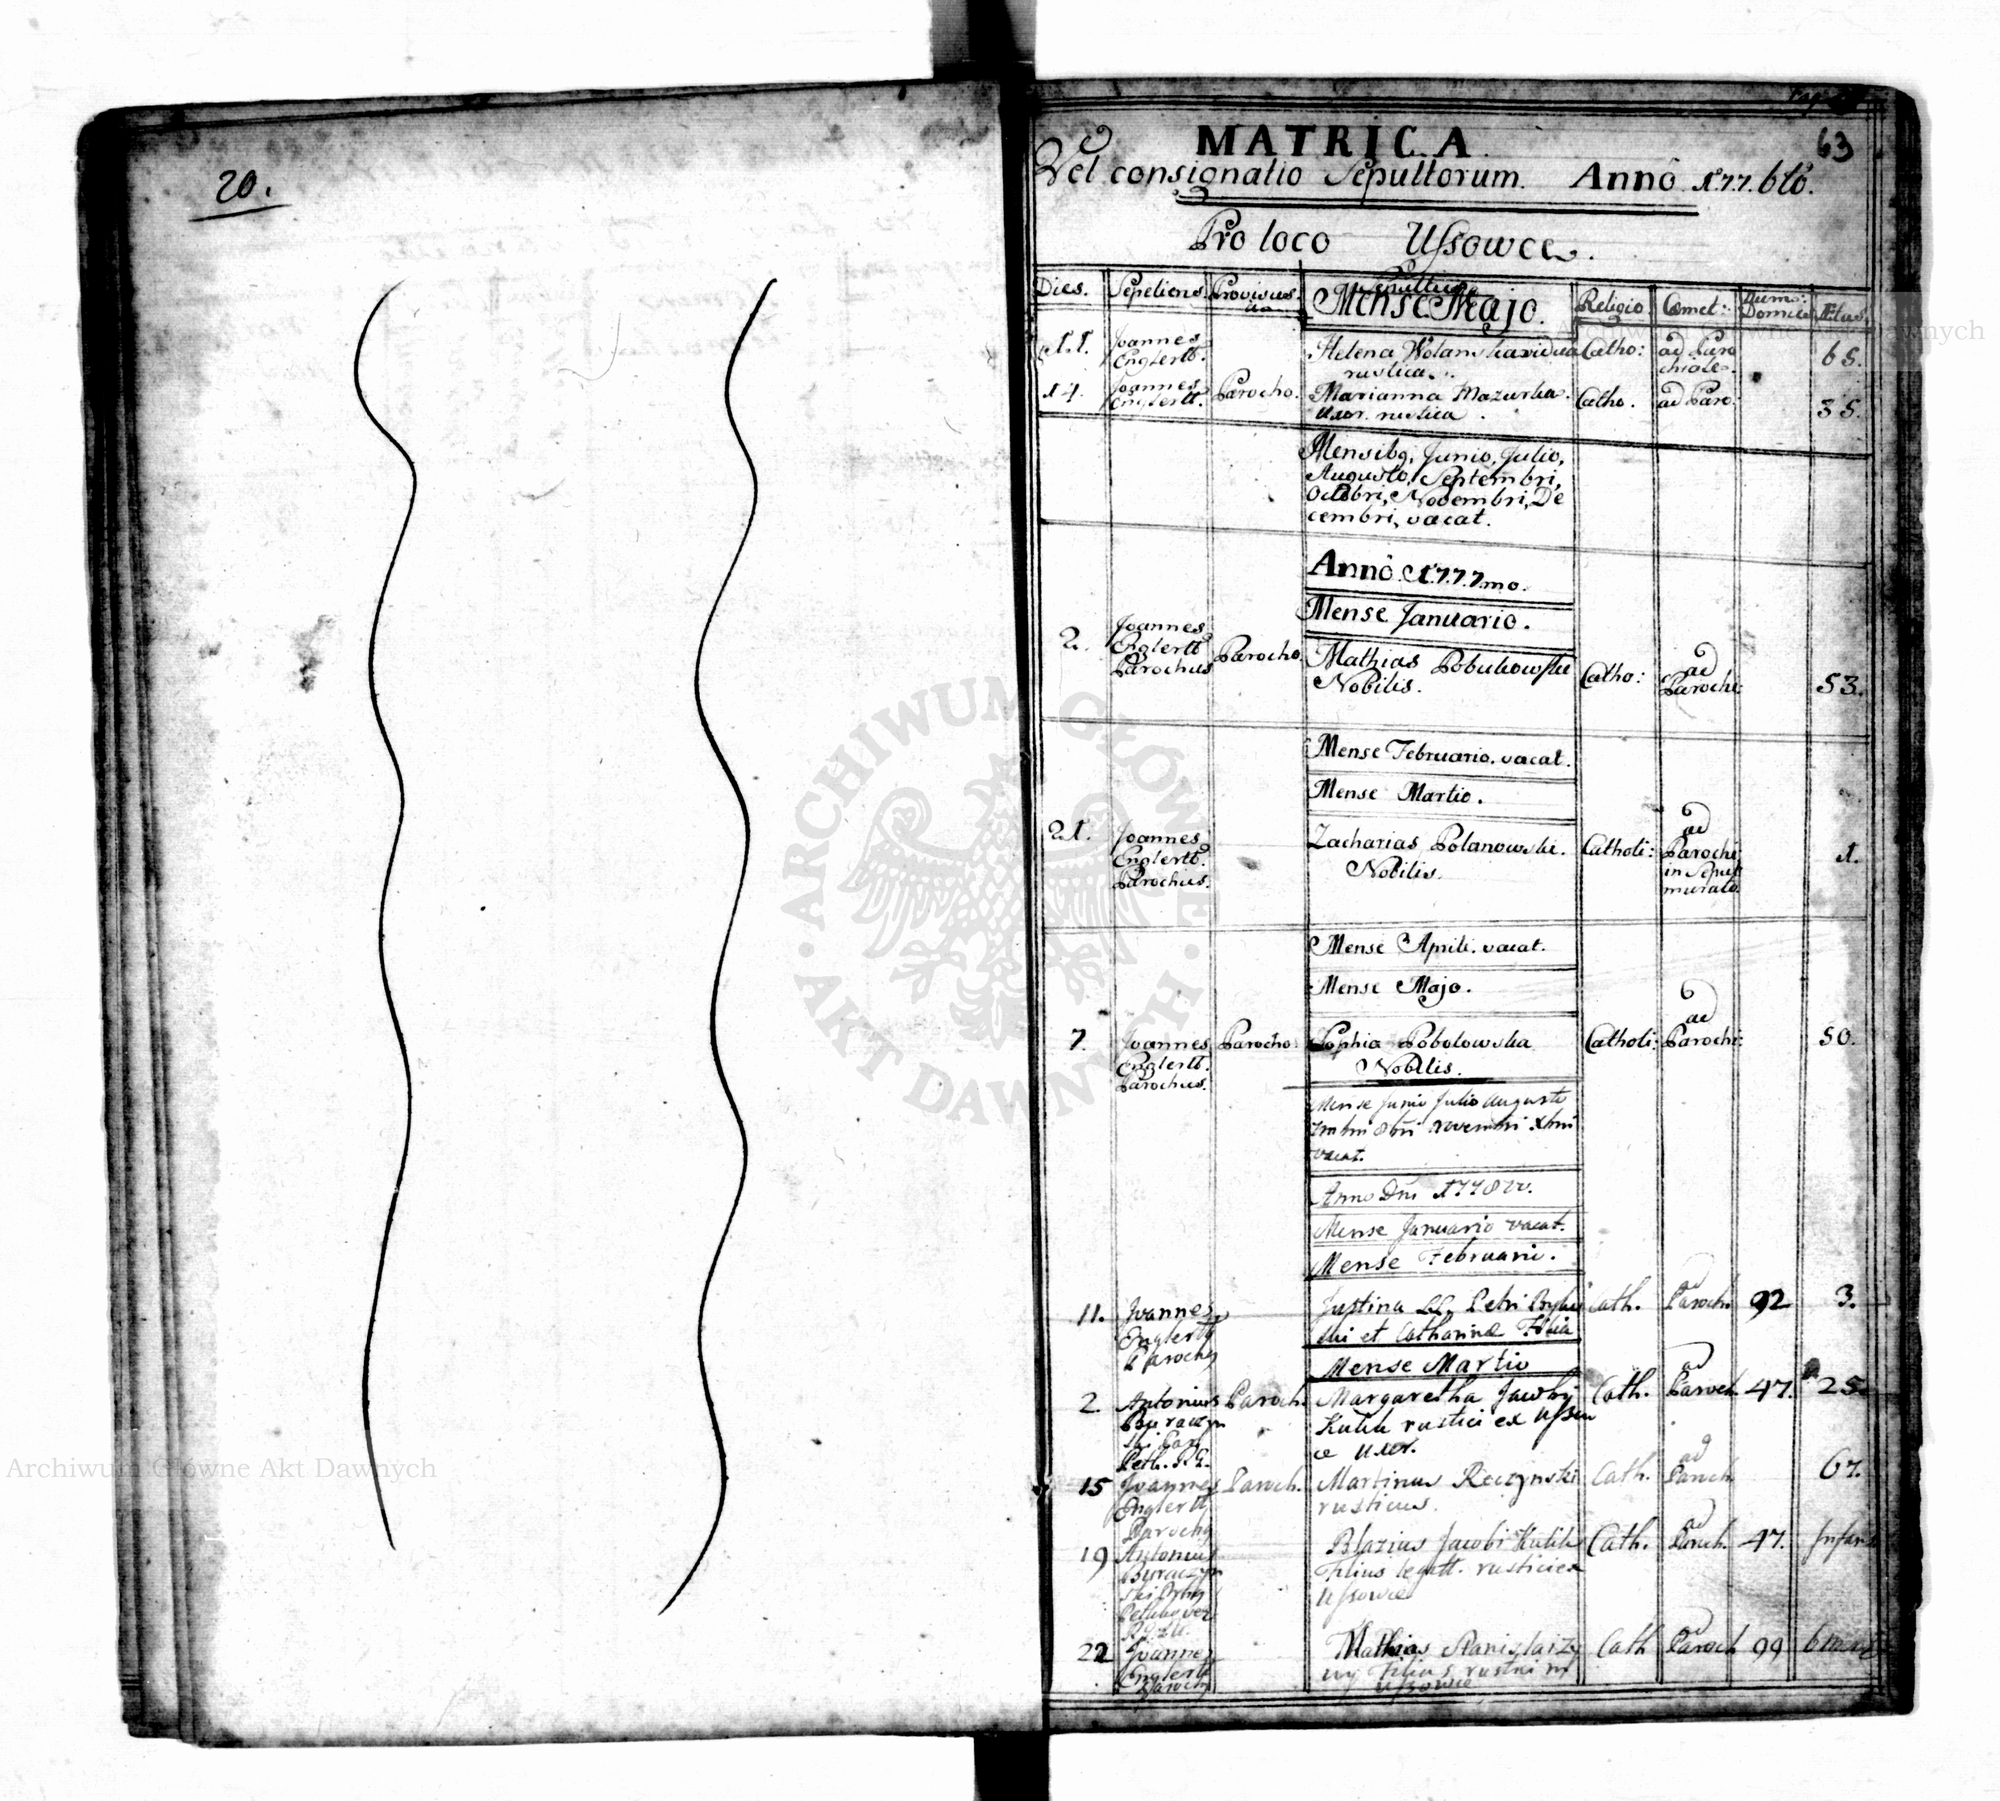 20.
63
MATRICA
Vel consignatio Sepultorum. Annô 1776tô.
Pro loco Ussowce.
Dies. Sepeliens. Provisus Sepultus Religio Cœmet: Num: Domus Ætas.
Mense Majo.
11. Joannes Englertt. Helena Wolanska vidua rustica. Catho: ad Parochiale. 65.
14. Joannes Englertt. Parocho. Marianna Mazurka. uxor rustica. Catho. ad Paro: 35.
Mensibq, Junio, Julio,
Augusto, Septembri,
Octobri, Novembri, De
cembri, vacat.
Annô. 1777mo.
Mense Januario.
2. Joannes Englertt Parochus Parocho. Mathias Nobilis. Catho: ad Parochi: 53.
Mense Februario. vacat.
Mense Martio.
21. Joannes Englertt. Parochus. Zacharias Polanowski. Nobilis. Catholi: ad Parochi in Sepul murato. 1.
Mense Aprili. vacat.
Mense Majo.
7. Joannes Englertt. Parochus. Parocho. Sophia Pobolowska Nobilis. Catholi: ad Parochi: 50.
Mense Junio Julio Augusto
7mbri 8bri Novembri Xbri
vacat.
Anno Dni 1778vo.
Mense Januario vacat.
Mense Februario.
11. Joannes Englertt Parochq Justina LL. Petri et Catharinæ Filia Cath. ad Paroch. 92 3.
Mense Martio
2 Antonius Paroch. Margaretha Jacobi Kulik rustici ex Ussowce uxor. Cath. ad Paroch. 47. 25.
15 Joannes Englertt Parochq Paroch. Martinus Reczynski rusticus. Cath. ad Paroch. 67.
19 Antonius Blazius Jacobi Kulik Filius legitt. rustici ex Ussowce Cath. ad Paroch. 47. Infans
22 Joannes Englertt Parochq Mathias Filius rustici in Ussowce Cath ad Paroch 99
Archiwum Główne Akt Dawnych
ARCHIWUM GŁÓWNE · AKT DAWNYCH ·
Archiwum Główne Akt Dawnych